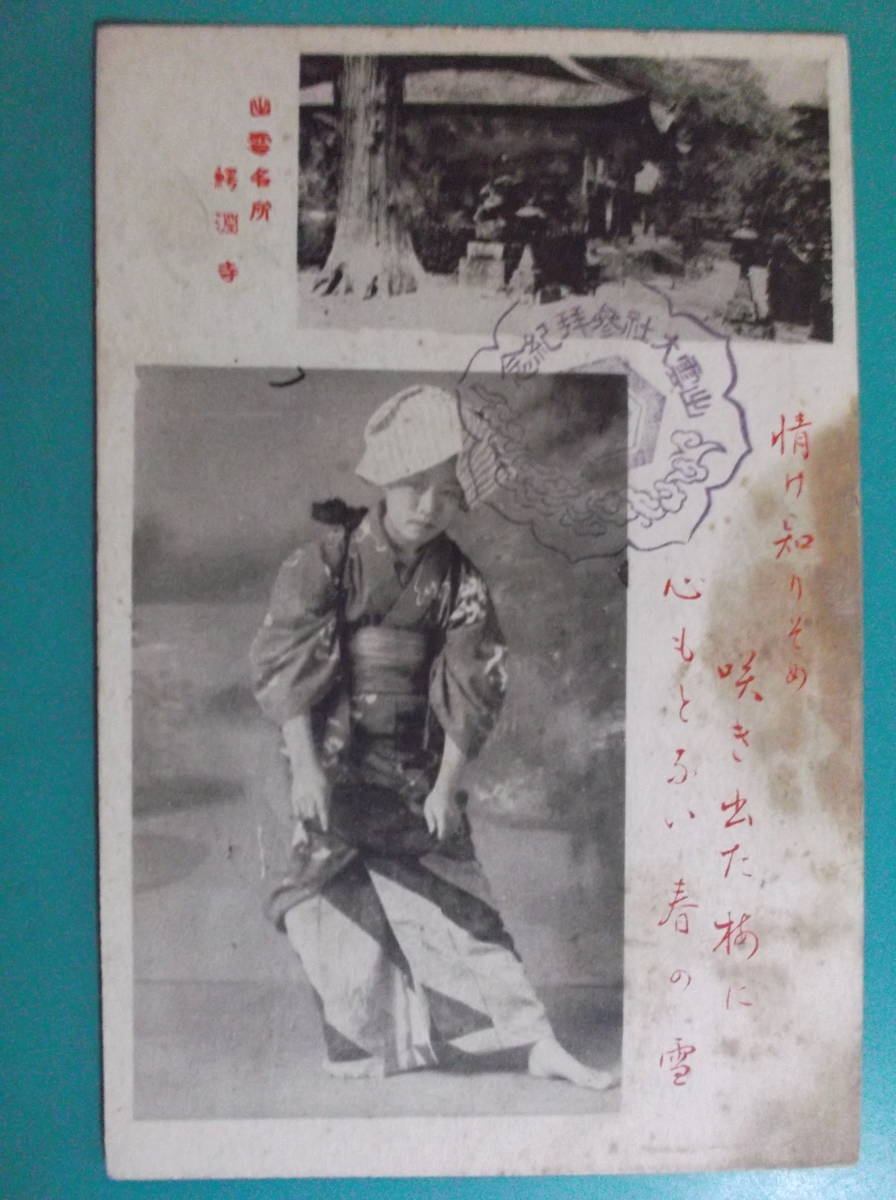 出雲名所
鰐淵寺
出雲大社參拜紀念
情け知りそめ
咲き出た梅に
心もとない春の雪